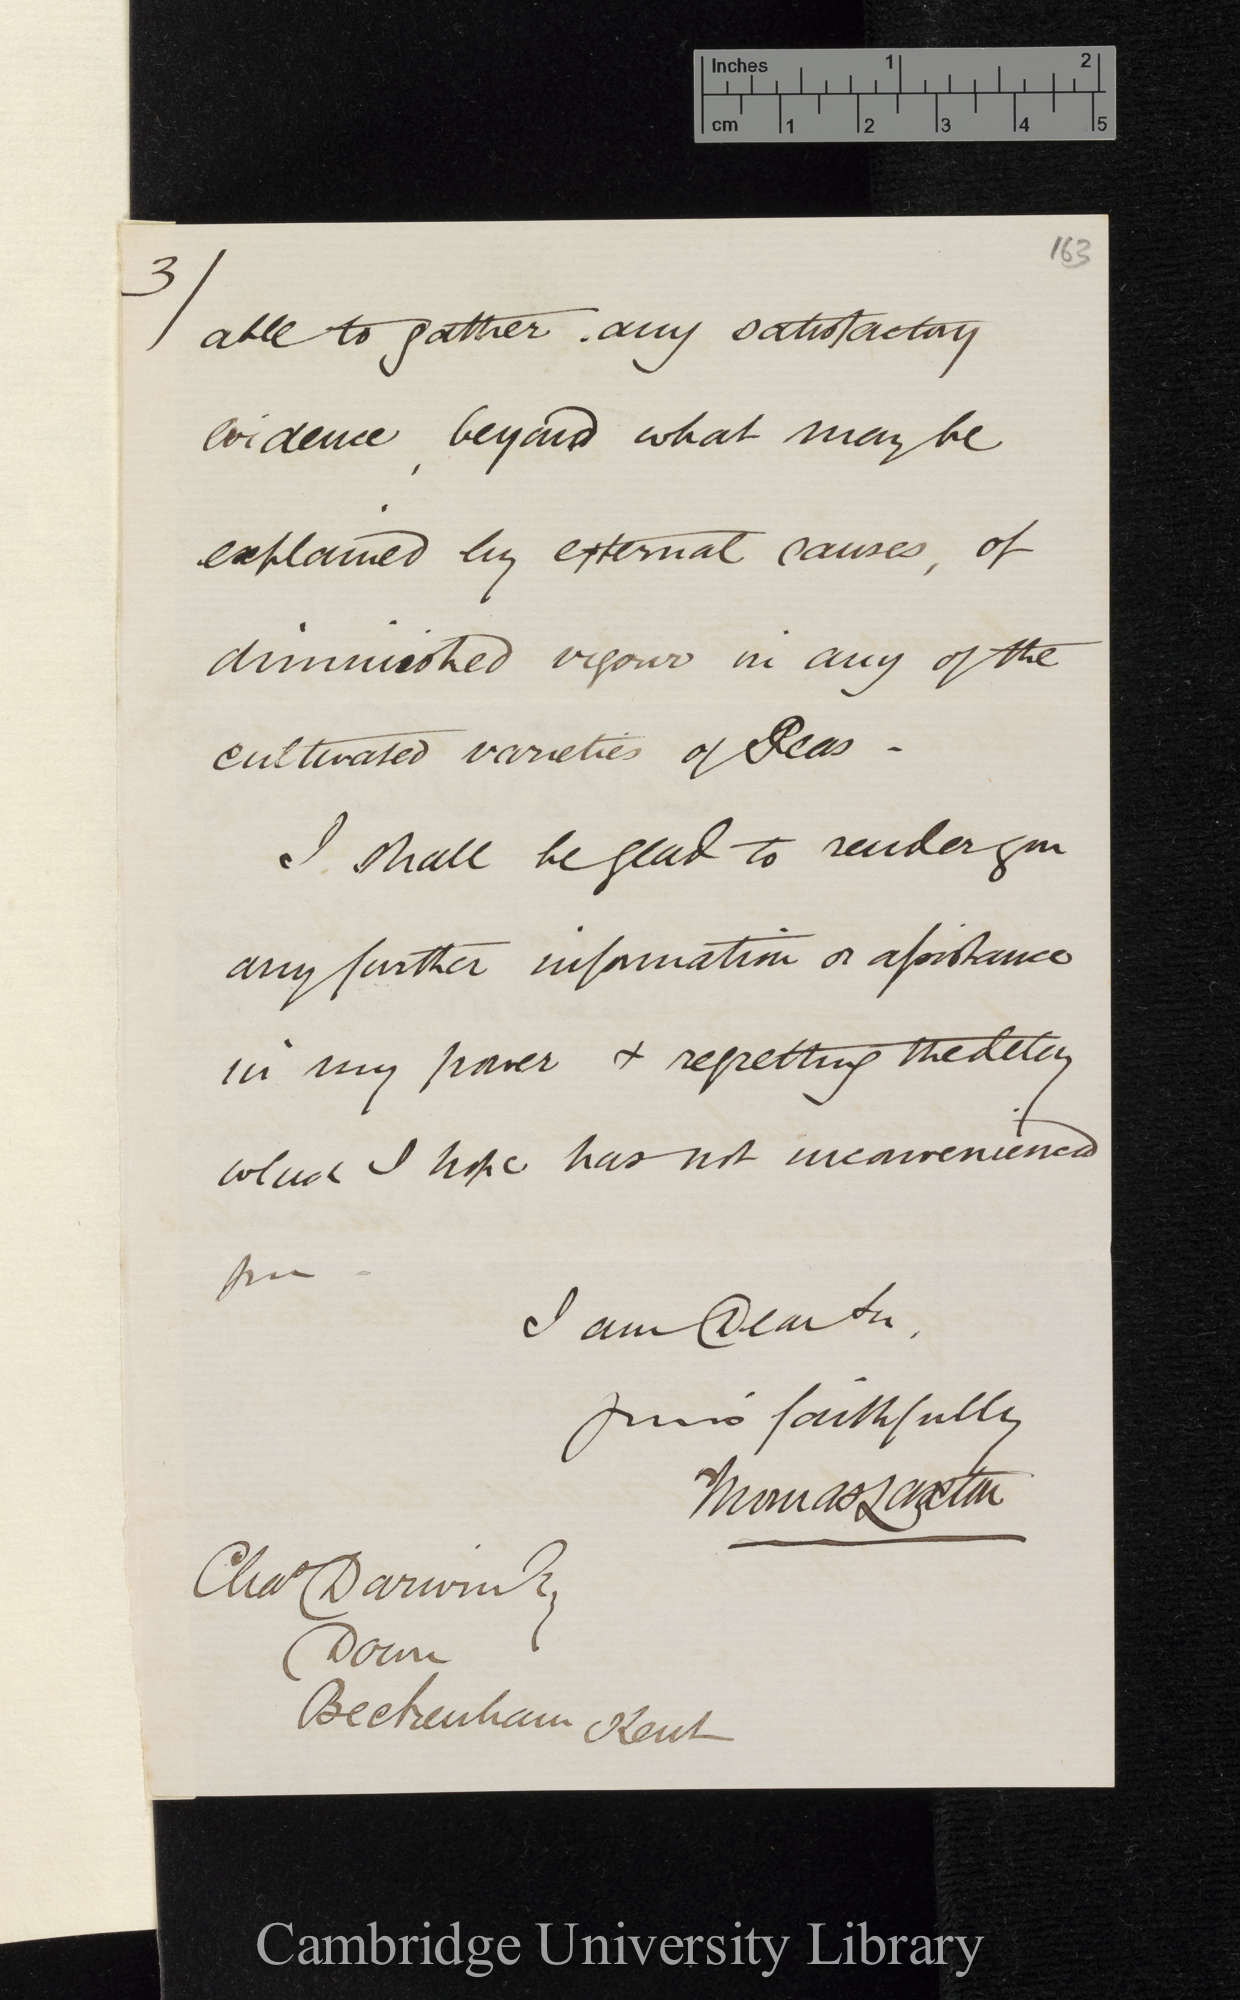 Inches 1 2
cm 1 2 3 4 5
163
3/
able to gather any satisfactory
evidence, beyond what may be
explained by external causes, of
diminished vigour in any of the
cultivated varieties of Peas -
I shall be glad to render you
any further information or assistance
in my power & regretting the delay
which I hope has not inconvenienced
you -
I am Dear Sir,
yours faithfully
Thomas Laxton
Chas Darwin Esq
Down
Beckenham Kent
Cambridge University Library